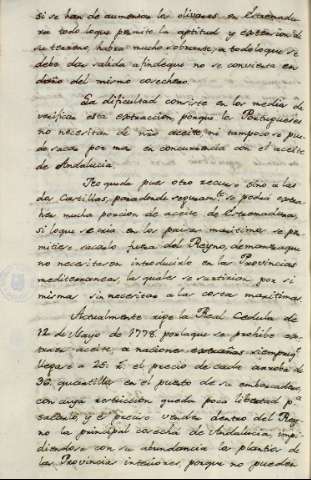 si se han de aumentar los olivares en Estremadu-
ra todo loque permite la aptitud y extension de
su terreno, habra mucho sobrante, a todo lo que se
debe dar salida a fin de que no se convierta en
daño del mismo cosechero.
La dificultad consiste en los medios de
verificar esta extraccion porque los Portugueses
no necesitan de nro aceite, ni tampoco se pue-
de sacar por mar en concurrencia con el aceite
de Andalucia.
No queda pues otro recurso sino a las
dos Castillas, para donde seguram.te se podria extra-
her mucha porcion de aceite de Estremadura,
si loque se cria en los paises maritimos se per-
mitiese sacarlo fuera del Reyno, de manera que
no necesitasen introducirlo en las Provincias
mediterraneas, las quales se surtirian por si
mismas sin necesitar a las costas maritimas.
Actualmente rige la Real Cedula de
12 de Mayo de 1778. por la que se prohibe ex-
traer aceite a naciones estrañas siempre q.e
llegase a 25. r. el precio de cada arroba de
36. quartillos en el puerto de su embarcadero,
con cuya restriccion queda poca libertad p.a
sacarlo, y es preciso vender dentro del Rey-
no la principal cosecha de Andalucia, impi-
diendose con su abundancia los plantios de
las Provincias interiores, porque no pueden